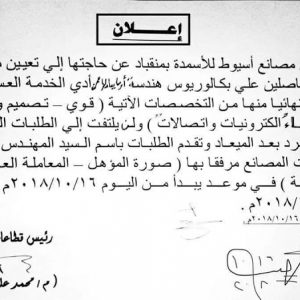 إعلان
مصانع أسيوط للأسمدة بمنقباد عن حاجتها إلي تعيين
اصلين علي بكالوريوس هندسة أدي الخدمة العس
هائيا منها من التخصصات الآتية ( قوي – تصميم و
اء ألكترونيات واتصالات ) ولن يلتفت إلي الطلبات ال
رد بعد الميعاد وتقدم الطلبات باسم السيد المهندس
ت المصانع مرفقا بها ( صورة المؤهل – المعاملة الع
ة ) في موعد يبدأ من اليوم ٢٠١٨/١٠/١٦م
٢٠١٨/١٠م .
٢٠١٨/١٠/١٦م
رئيس قطاعا
(م/محمد عل